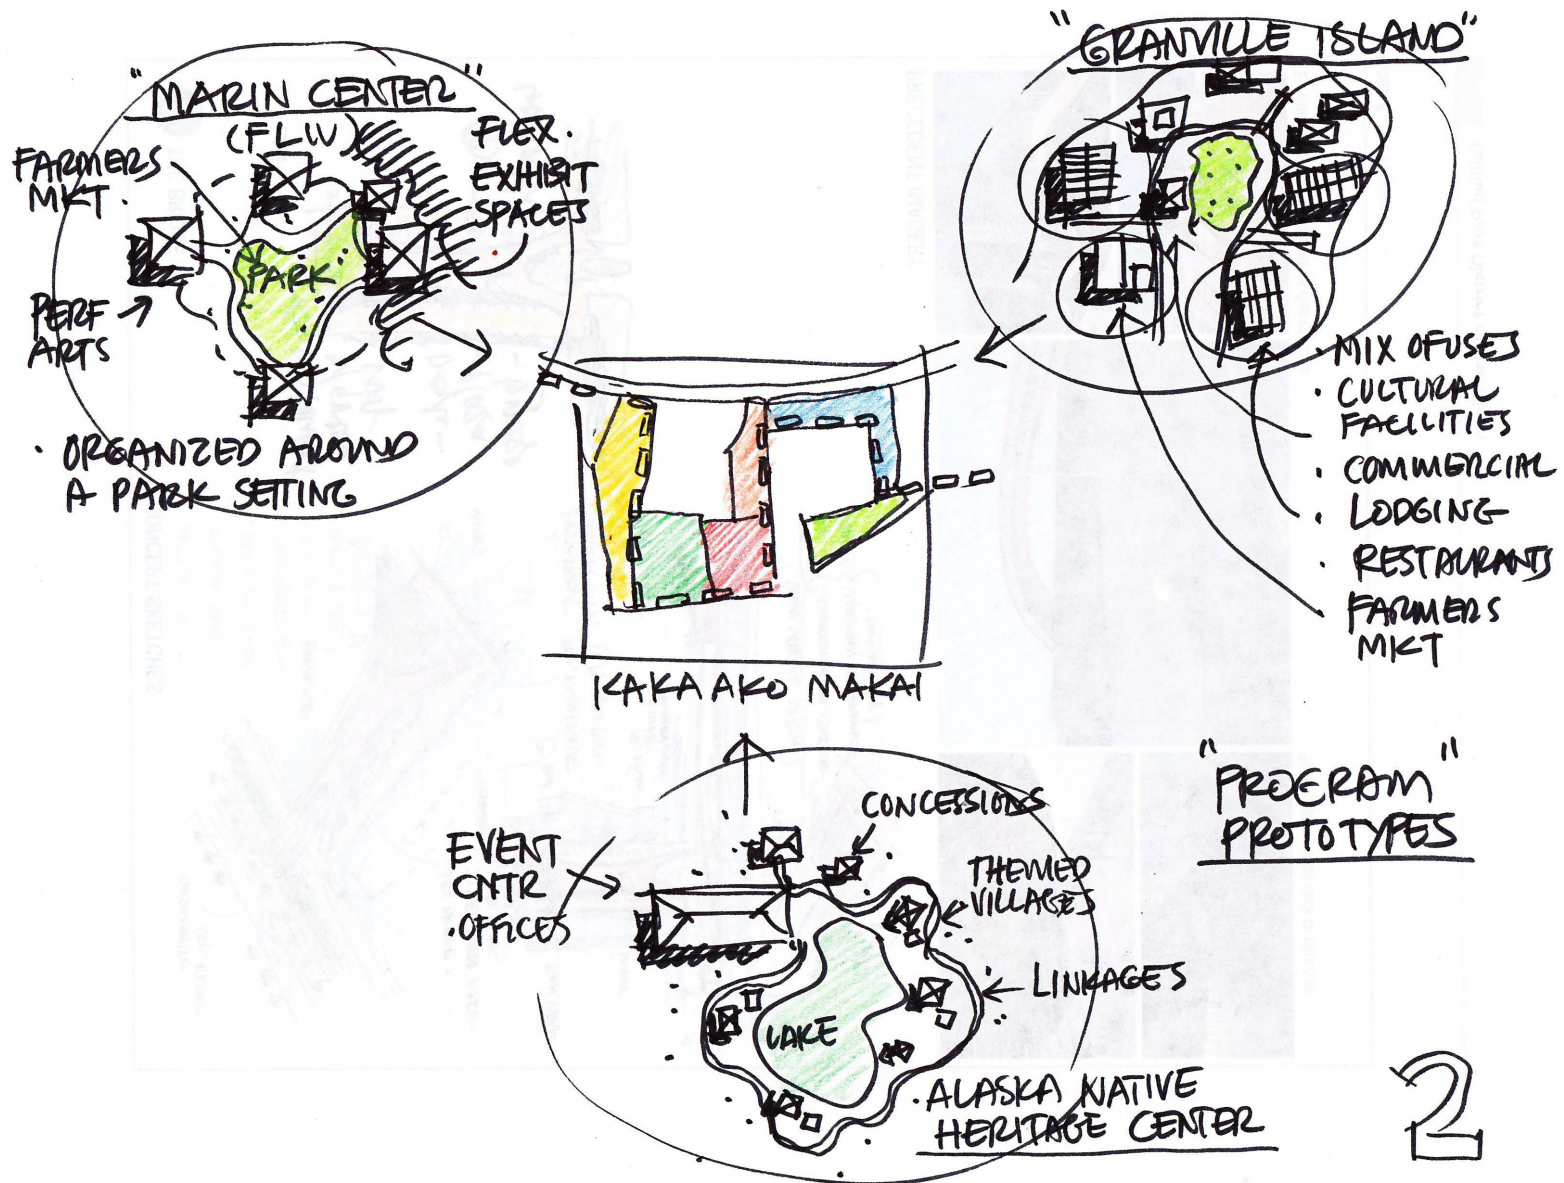 "MARIN CENTER"
(FLW)
FARMERS
MKT.
FLEX.
EXHIBIT
SPACES
PARK
PERF
ARTS
• ORGANIZED AROUND
A PARK SETTING
"GRANVILLE ISLAND"
• MIX OF USES
• CULTURAL
FACILITIES
• COMMERCIAL
• LODGING
• RESTAURANTS
• FARMERS
MKT
KAKAAKO MAKAI
"PROGRAM"
PROTOTYPES
CONCESSIONS
EVENT
CNTR
• OFFICES
THEMED
VILLAGES
LINKAGES
LAKE
• ALASKA NATIVE
HERITAGE CENTER
2